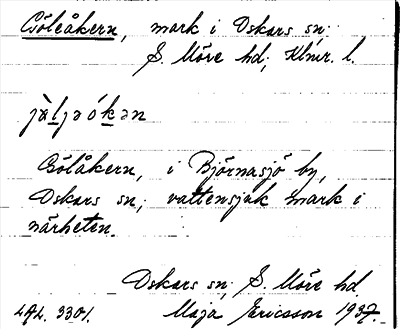 Göleåkern, mark i Oskars sn;
S. Möre hd; Klmr. l.
jø̀ljəókən
Gölåkern, i Björnasjö by,
Oskars sn, vattensjuk mark i
närheten.
Oskars sn, S. Möre hd
LAL. 3301. Maja Ericsson 1937.